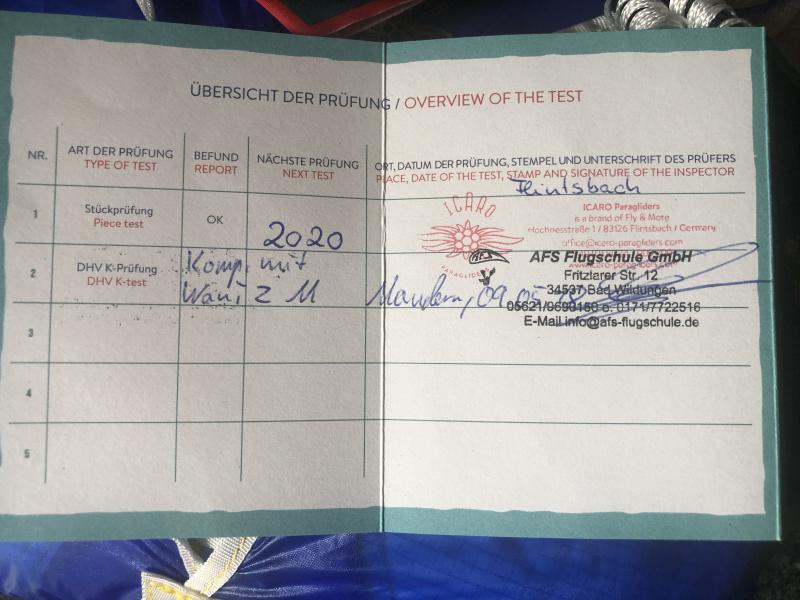 ÜBERSICHT DER PRÜFUNG / OVERVIEW OF THE TEST
NR.
ART DER PRÜFUNG
TYPE OF TEST
BEFUND
REPORT
NÄCHSTE PRÜFUNG
NEXT TEST
ORT, DATUM DER PRÜFUNG, STEMPEL UND UNTERSCHRIFT DES PRÜFERS
PLACE, DATE OF THE TEST, STAMP AND SIGNATURE OF THE INSPECTOR
1
Stückprüfung
Piece test
OK
2020
Flintsbach
ICARO
PARAGLIDERS
ICARO Paragliders
is a brand of Fly & More
Hochriesstraße 1 / 83126 Flintsbach / Germany
office@icaro-paragliders.com
www.icaro-paragliders.com
2
DHV K-Prüfung
DHV K-test
Komp. mit
Wani 2 M
09.05.18
AFS Flugschule GmbH
Fritzlarer Str. 12
34537 Bad Wildungen
05621/9690150 o. 0171/7722516
E-Mail info@afs-flugschule.de
3
4
5